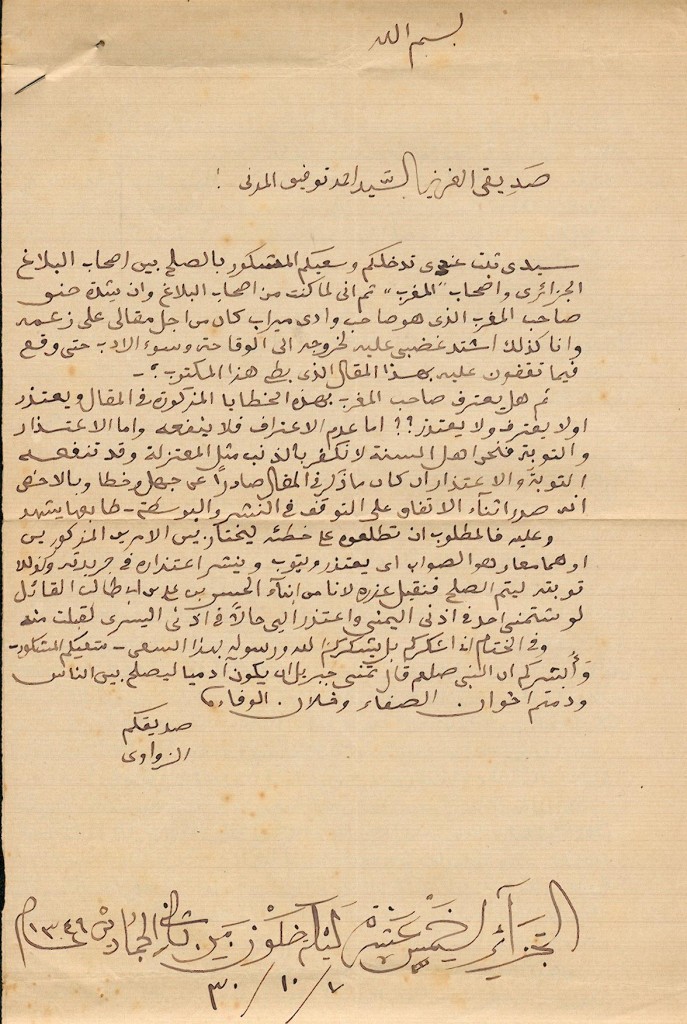 بسم الله
صديقي العزيز السيد احمد توفيق المدني !
سيدي ثبت عندي تدخلكم وسعيكم المشكور بالصلح بين اصحاب البلاغ
الجزائري واصحاب "المغرب" ثم اني لما كنت من اصحاب البلاغ وان شدة حنق
صاحب المغرب الذي هو صاحب وادي ميزاب كان من اجل مقالي على زعمه
وانا كذلك اشتد غضبي عليه لخروجه الى الوقاحة وسوء الادب حتى وقع
فيما تقفون عليه بهذا المقال الذي بطي هذا المكتوب؟ -
ثم هل يعترف صاحب المغرب بهذه الخطايا المذكورة في المقال ويعتذر
او لا يعترف ولا يعتذر؟؟ اما عدم الاعتراف فلا ينفعه واما الاعتذار
والتوبة فنحن اهل السنة لا نكفر بالذنب مثل المعتزلة وقد تنفعه
التوبة والاعتذار ان كان ما ذكر في المقال صادرا عن جهل وخطا وبالاخص
انه صدر اثناء الاتفاق على التوقف في النشر والبوسطة - طابعها يشهد
وعليه فالمطلوب ان تطلعوه على خطئه ليختار بين الامرين المذكورين
او هما معا وهو الصواب اي يعتذر ويتوب وينشر اعتذاره في جريدته وكذلك
توبته ليتم الصلح فنقبل عذره لاننا من ابناء الحسن بن علي بن ابي طالب القائل
لو شتمني احد في اذني اليمنى واعتذر الي حالا في اذني اليسرى لقبلت منه
وفي الختام اني اشكركم بل يشكركم الله ورسوله بهذا السعي - سعيكم المشكور -
وأبشركم ان النبي صلعم قال تمنى جبريل ان يكون آدميا ليصلح بين الناس
ودمتم اخوان الصفاء وخلان الوفاء
صديقكم
الزواوي
الجزائر لخمس عشرة ليلة خلون من ثاني الجمادين ١٣٤٩
٧ / ١٠ / ٣٠